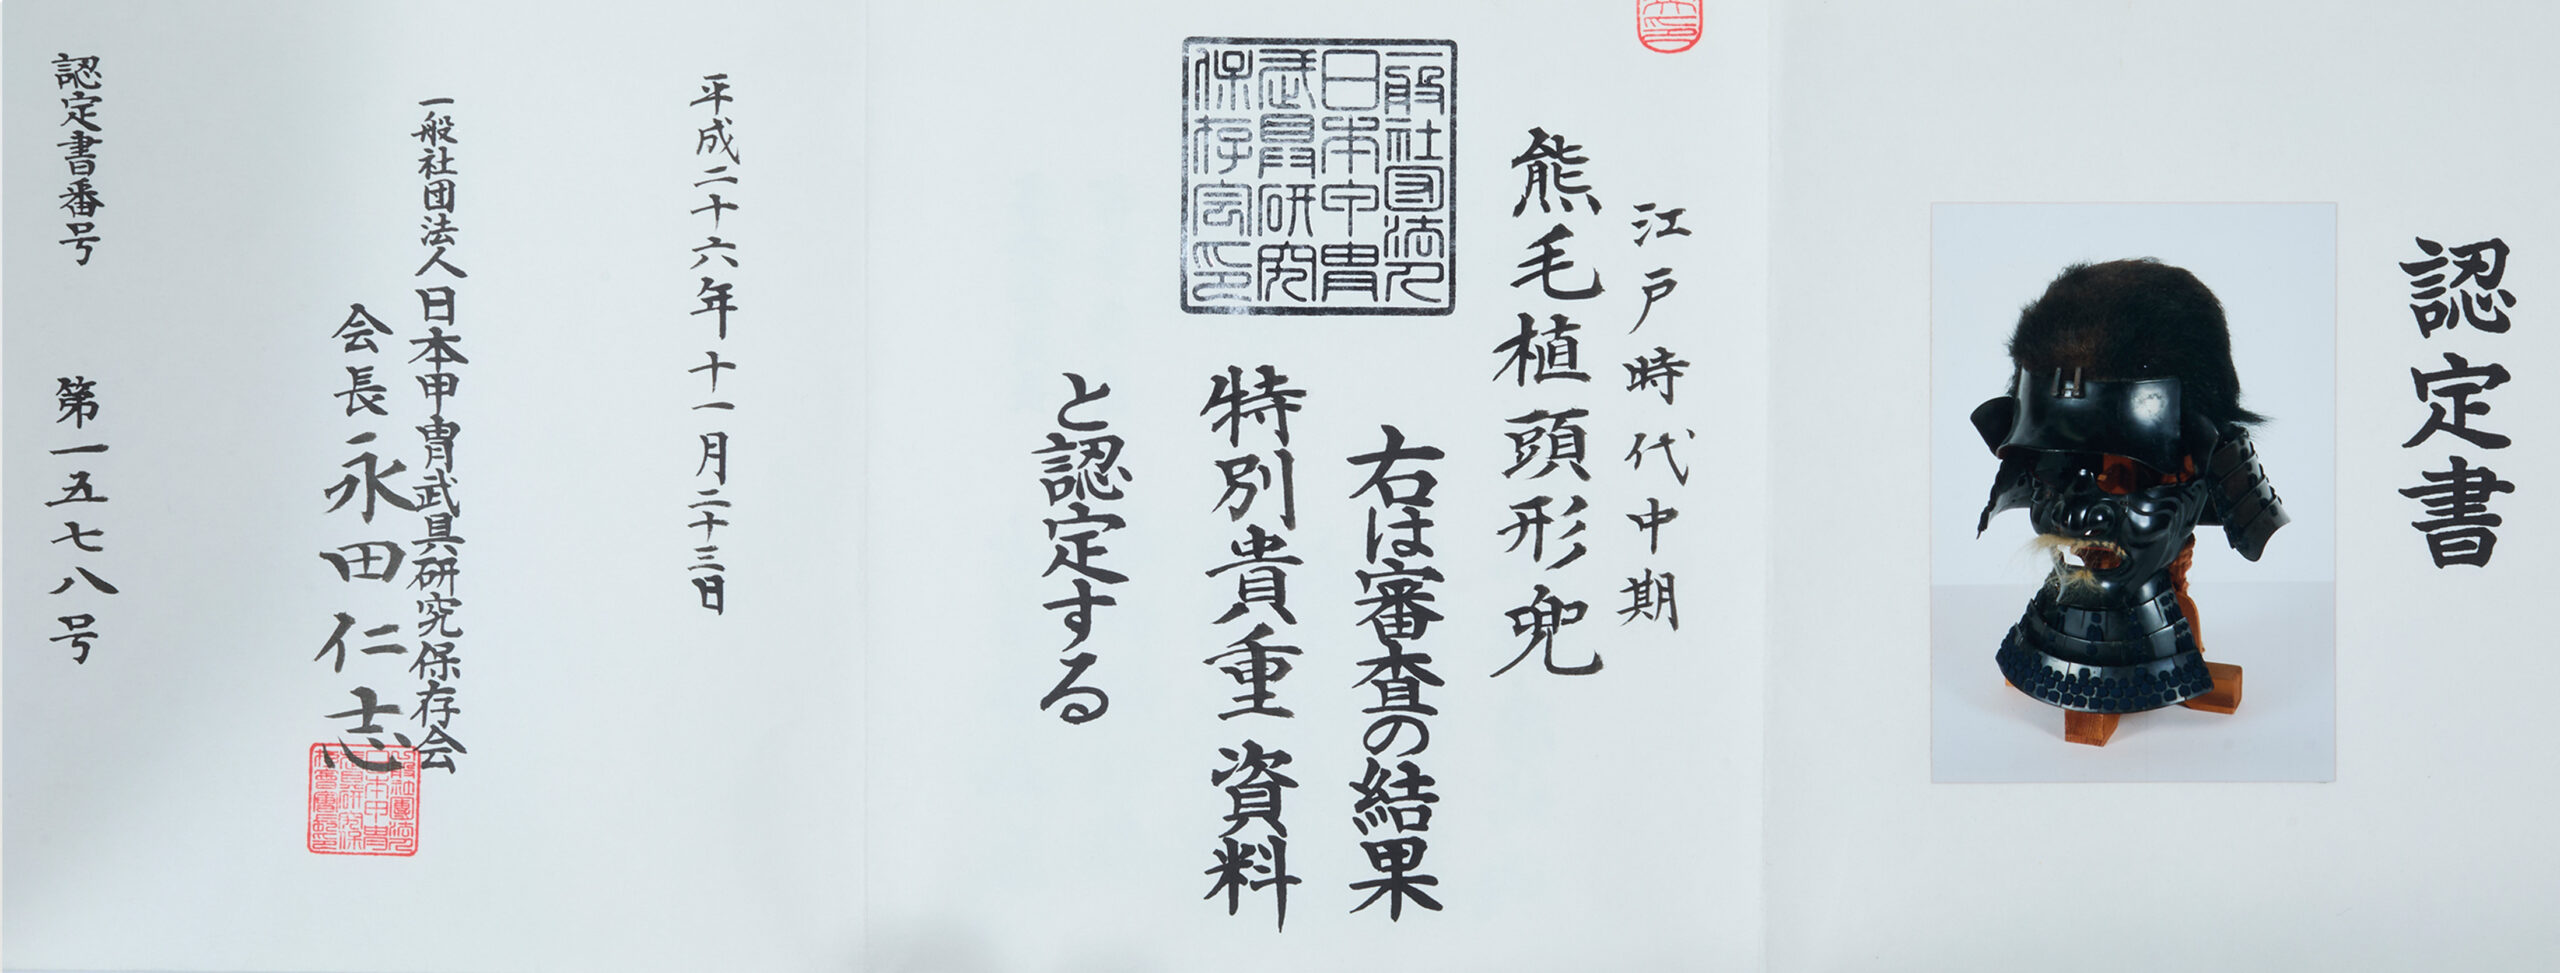 認定書
江戸時代中期
熊毛植頭形兜
右は審査の結果
特別貴重資料
と認定する
一般社団法人
日本甲冑
武具研究
保存会印
平成二十六年十一月二十三日
一般社団法人日本甲冑武具研究保存会
会長永田仁志
認定書番号 第一五七八号